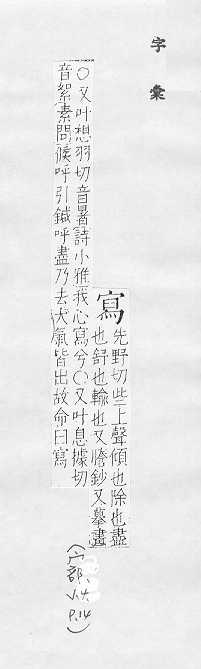 字彙
寫
先野切些上聲傾也除也盡
也舒也輸也又謄鈔又摹畫
〇又叶想羽切音暑詩小雅我心寫兮〇又叶息據切
音絮素問候呼引鍼呼盡乃去大氣皆出故命曰寫
(宀部、 P.14)